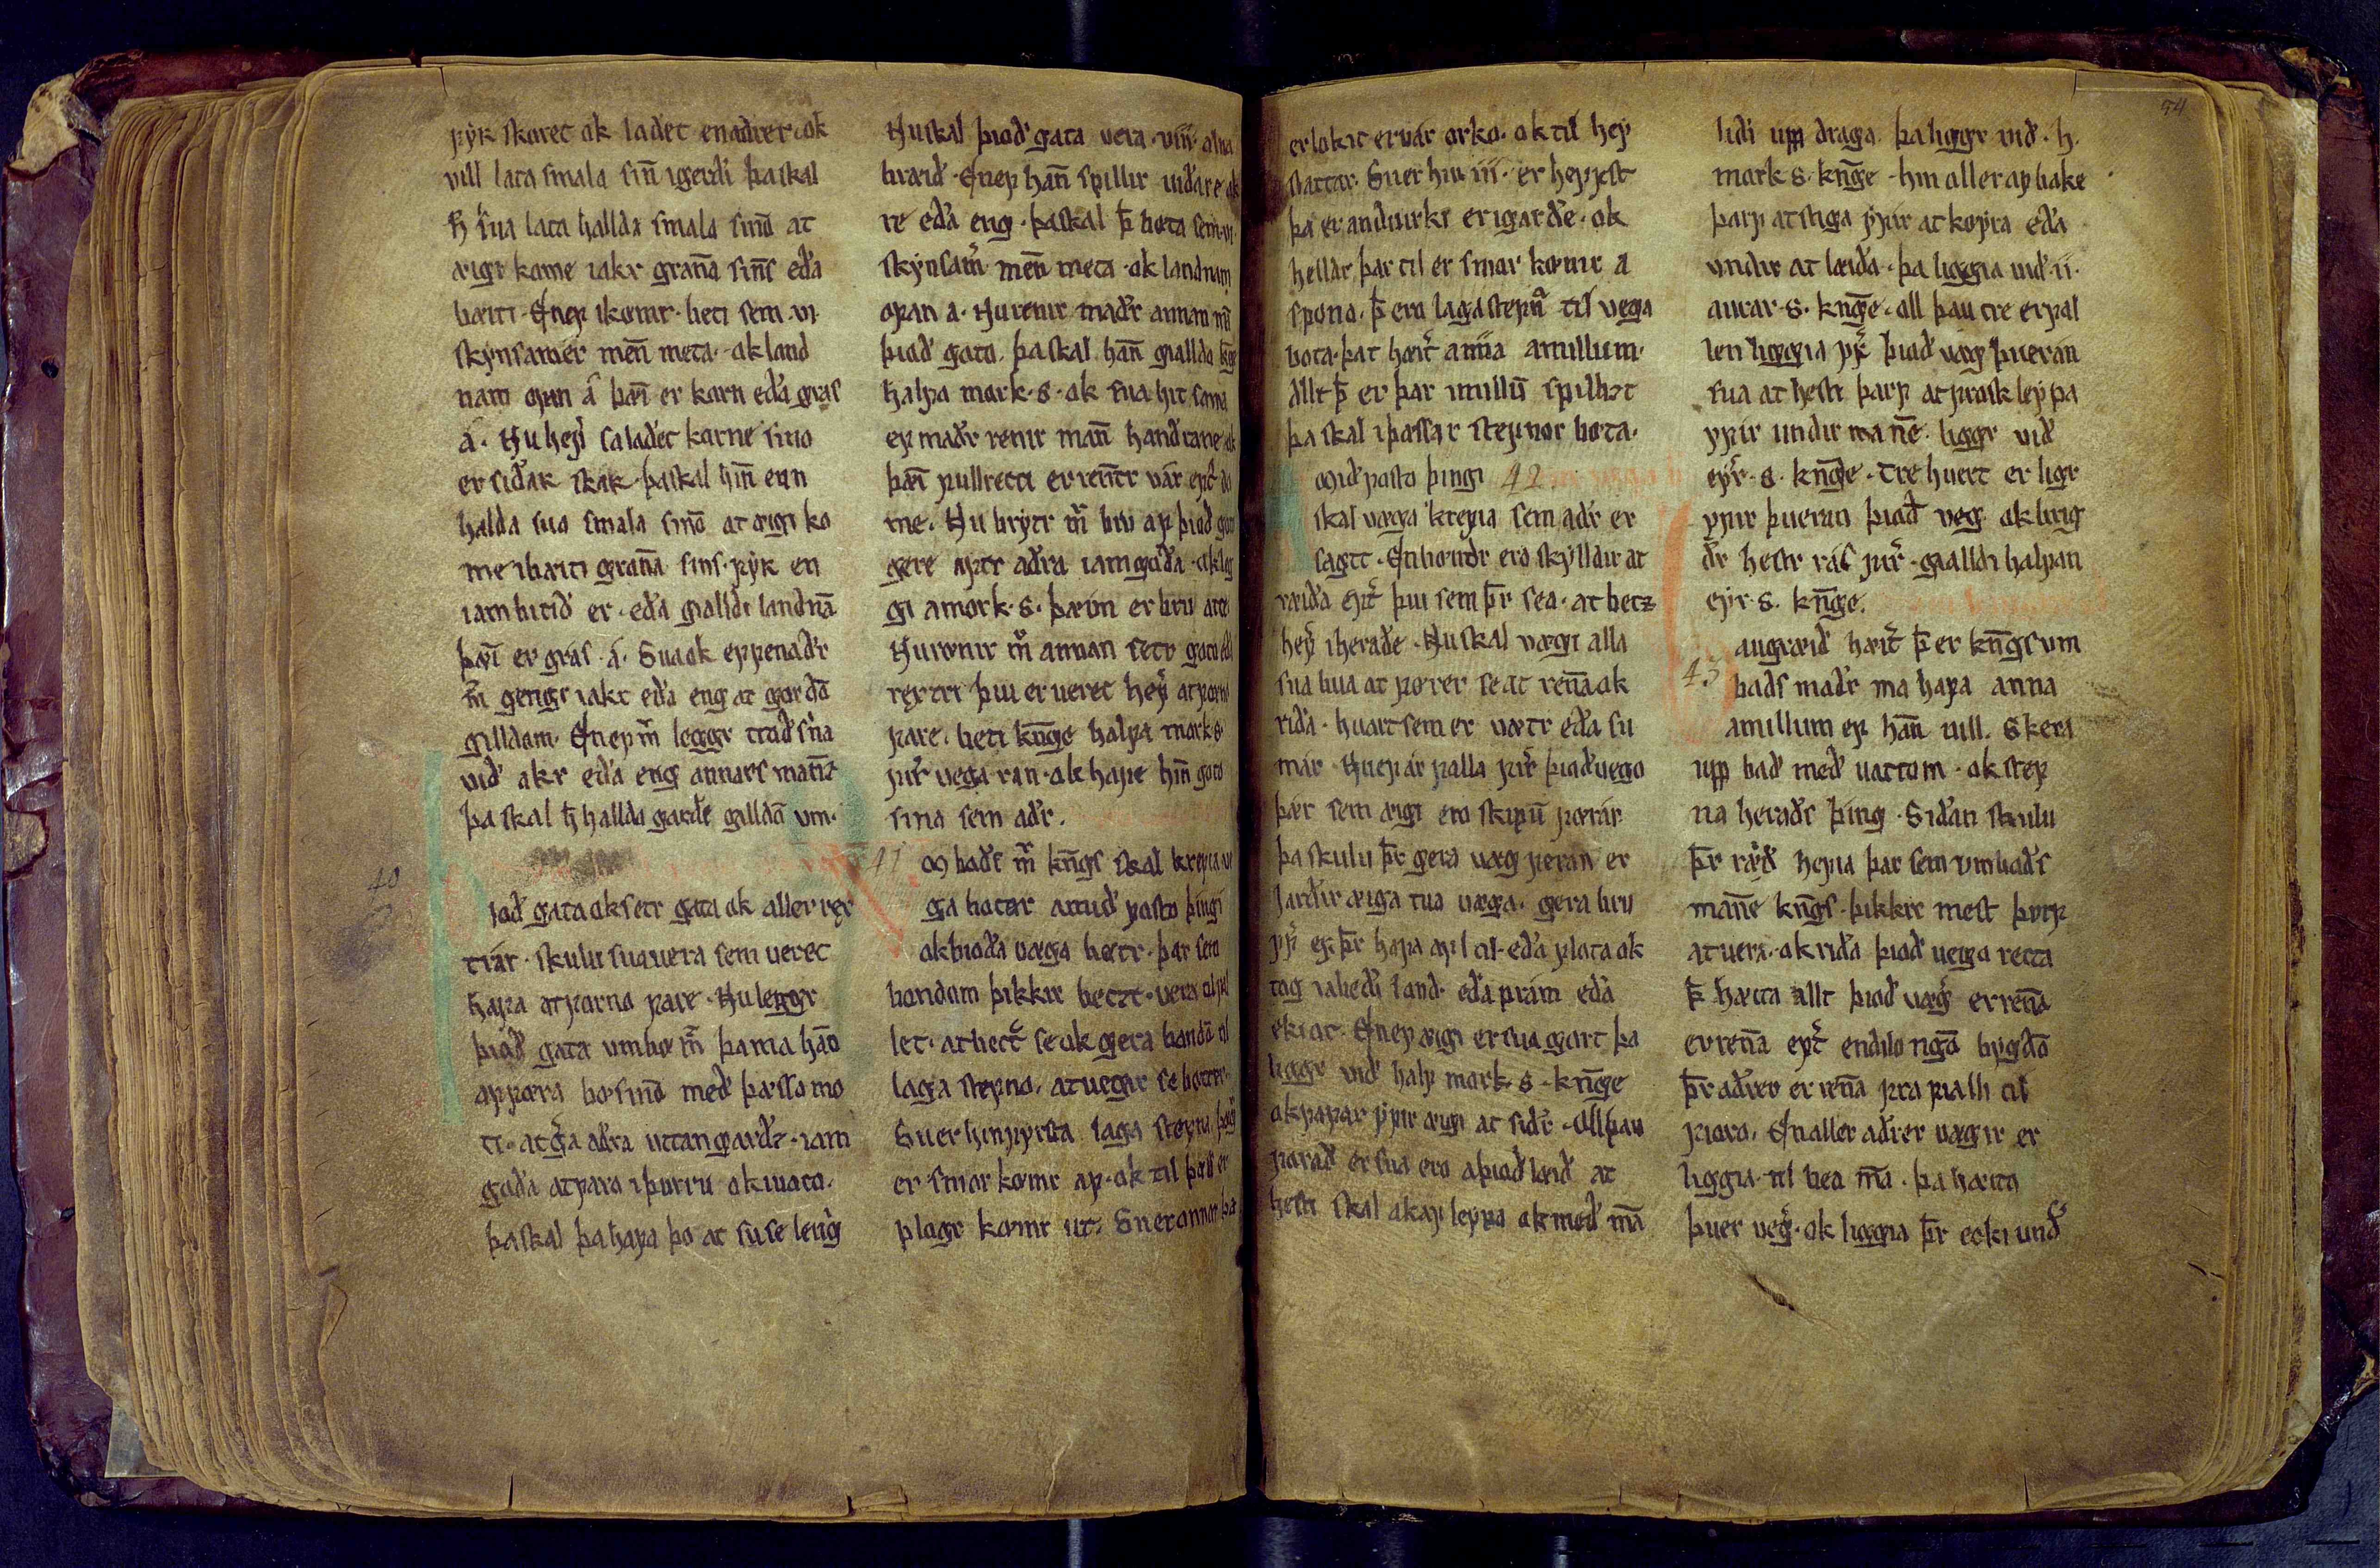 fyk skoret ok ladet en adrer. ok
vill lata smala sin̄ i gerdi þa skal
ħ sua lata hallda smala sinō at
æigi kome i akr gran̄a sins eða
bæiti. En ef i komr. beti sem .vi.
skynsamer men̄ meta. ok land
nam ofan á þan̄ er korn eða gras
á. Nu hefir sa ladet korne sino
er siðar skar. þa skal hin̄ enn
halda suo smala sinō at æigi ko
me i bæiti gran̄a sins. fyr en
iam bitið er. eða gialldi landnā
þæī er gras á. Sua ok ef fenaðr
m̄ gengr i akr eða eng at garðā
gilldom. En ef m̄ leggr trað sina
við akr eða eng annars man̄z
þa skal ħ hallda garðe gilldā um.
40
ioð gata ok setr gata ok aller rex
trar. skulu sua vera sem veret
hafa at forno fare. Nu lengr
þioð gata um bø m̄ þa ma hā
af føra bø sinō með þæsso mo
ti. at ḡa aðra uttan garðz. iam
goða at fara i þurru ok i uato.
þa skal þa hafa þo at su se leng̃
Nu skal þioð gata vera .viii. alna
bræið. En ef han̄ spillir viðare ak
re eða eng. þa skal þ̄ bøta sem .vi.
skynsam̃ men̄ meta. ok landnam
ofan á. Nu renir maðr annan mā
þioð gato. þa skal han̄ giallda kn̄ge
halfa mork .s. ok sua hit sama
ef maðr renir man̄ handrane. ok
þæī fullretti er ren̄tr var ept̃ do
me. Nu brytr m̄ bru af þioð goto
gere aptr aðra iamgoða. ok leg
gi a mork .s. þæim er bru atte
Nu rønir m̄ annan setr goto eða
rextri þui er veret hef̃ at forno
fare. beti kn̄ge halfa mork .s.
fir̃ vega ran. ok hafe hin̄ goto
sina sem aðr.
41
m baðs m̄ kn̄gs skal krefia ve
ga botar a miðfasto þingi
ok bioða vega bøtr. þar sem
bondom þikkir bezt. vera al fel
let. at bezt̃ se ok gera bondā til
laga stefno. at vegar se bøtter.
Su er hin fyrsta laga stefna þeg̃
er snior komr af. ok til þess er
plogr komr ut. Su er onnor þa
er lokit er vár orko. ok til hey
slattar. Su er hin .iii. er hefizst
þa er anduirki er i garðe. ok
helldr þar til er snior kømr a
spona. þ̄ ero laga stefn̄ til vega
bota. þat hæit̃ an̄na amillum.
Allt þ̄ er þar imillū spillizt
þa skal i þæssar stefnor bøta.
mið fasto þingi 42
skal væga krefia sem aðr er
sagt. En bøndr ero skylldir at
ræiða ept̃ þui sem þr̄ sea. at betz
hef̃ i heraðe. Nu skal vægi alla
sua bua at fører se at ren̄a ok
riða. huart sem er vætr eða su
mar. Nu ef ár falla fir̃ þioðvego
þær sem æigi ero skipū færár
þa skulu þr̄ gera væg þeran er
Jardir æiga tua væga. gera bru
yf̃ ef þr̄ hafa afl til. eða flota ok
tog i a bæði land. eða prám eða
ekiar. En ef æigi er sua gort þa
liggr við half mork .s. kn̄ge
ok fafar yfir æigi at siðr. Oll þau
forað er sua ero a þioð læið at
hestr skal akaf leypa ok með mā
54
liði upp draga. þa liggr við .h.
mork .s. kn̄ge. hin aller af bake
þarf at stiga yfir at køyra eða
undir at læiða. þa liggia við .ii.
aurar .s. kn̄ge. all þau tre er fal
len liggia yf̃ þioð væg þueran
sua at hestr þarf at frask leypa
yfir undir man̄e. liggr við
eyr̃ .s. kn̄ge. tre huert er ligr
yfir þueran þioð veg. ok brig
ðr hestr rás fir̃. gialldi halfan
eyr̃ .s. kn̄ge.
43
augræið hæit̃ þ̄ er kn̄gs um
baðs maðr ma hafa anna
amillum ef han̄ vill. Skera
upp bað með vattom. ok stef
na heraðs þing. Siðan skulu
þr̄ ræið hefia þar sem umbaðs
man̄e kn̄gs þikkir mest þorf
at vera. ok riða þioð vega retta
þ̄ hæita allt þioð veg̃ er ren̄a
er ren̄a ept̃ endilongā bygdā
þr̄ aðrer er ren̄a fra fialli til
fioro. En aller aðrer vægir er
liggia til bea m̄a. þa hæita
þuer veg̃. ok liggia þr̄ ecki und̃